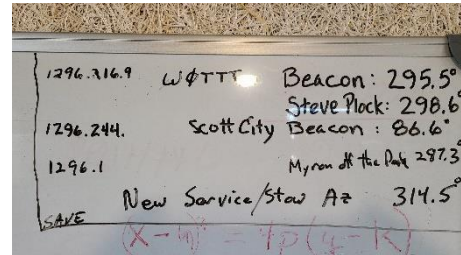 1296.316.9 WØTTT Beacon: 295.5°
Steve Plock: 298.6°
1296.244. Scott City Beacon : 86.6°
1296.1 Myron off the Park 287.3°
New Service/Stow Az 314.5°
SAVE
(x-h)² = 4p(y-k)